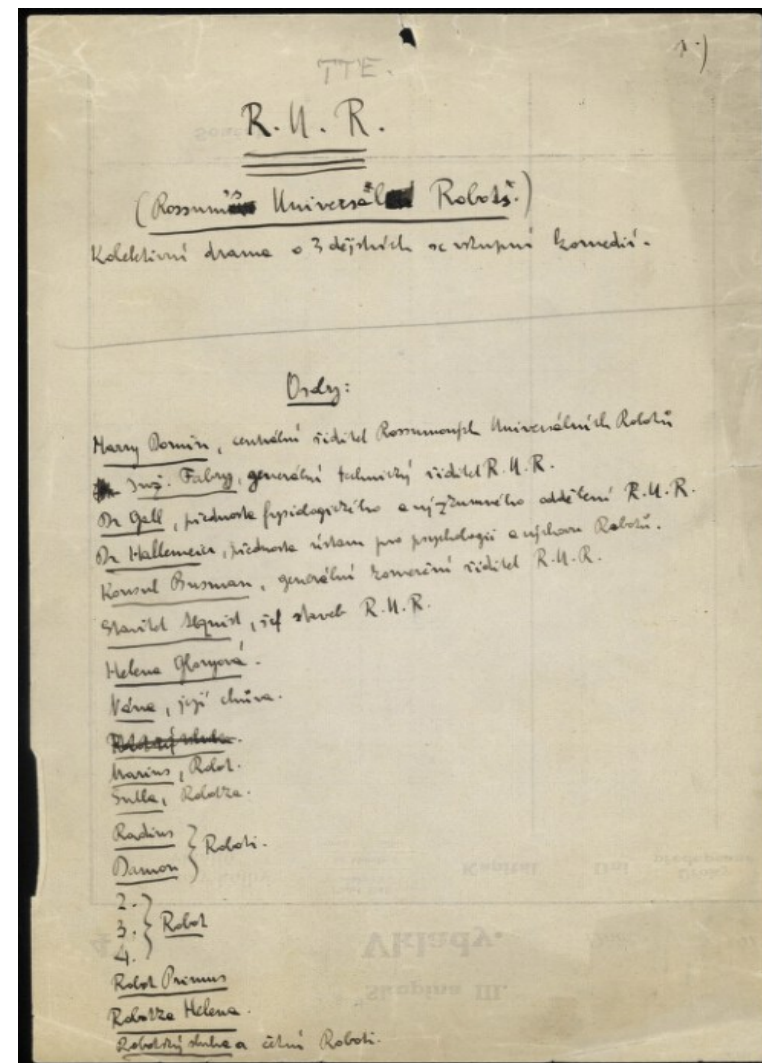 1.)
TTE.
R. U. R.
(Rossum's Universal Robots.)
Kolektivní drama o 3 dějstvích se vstupní komedií.
Osoby:
Harry Domin, centrální ředitel Rossumových Universálních Robotů
Inž. Fabry, generální technický ředitel R.U.R.
Dr Gall, přednosta fysiologického a výzkumného oddělení R.U.R.
Dr Hallemeier, přednosta ústavu pro psychologii a výchovu Robotů.
Konsul Busman, generální komerční ředitel R.U.R.
Stavitel Alquist, šéf staveb R.U.R.
Helena Gloryová.
Nána, její chůva.
Marius, Robot.
Sulla, Robotka.
Radius
Damon } Roboti.
2.
3. } Robot
4.
Robot Primus
Robotka Helena.
Robotský sluha a četní Roboti.
Kapitál
Dní
Vklady.
Skupina III.